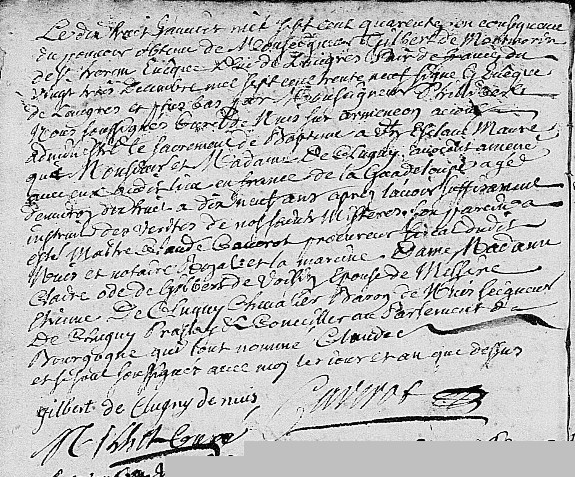 Le dix huit Janvier mil sept cent quarente, en consequence
du pouvoir obtenu de Monseigneur Gilbert de Montmorin
de St herem Eveque Duc de Langres Pair de france du
vingt trois Decembre mil sept cent trente neuf signé G Eveque
de Langres et plus bas par Monseigneur
Nous soussigné Curé de Nuis sur armençon avons
administré le sacrement de Baptême a un Esclave Maure
que Monsieur et Madame De Clugny avoient amené
avec eux audit lieu en france de la Guadeloupe agé
denviron dix huit a dix neuf ans apres lavoir suffisament
instruit des verités de nos saints Misteres son parein a
esté Maître Claude Cauerot procureur fiscal dudit
Nuis et notaire Royal et la mareine Dame Madame
Claire ode de Gilbert de Voisin Epouse de Messire
Etienne De Clugny Chevalier Baron de Nuis seigneur
De Clugny Praslay & Conseiller au Parlement de
Bourgogne qui lont nommé Claude
et se sont soussignés avec moy les jour et an que dessus
Gilbert de Clugny de nuis Cauerot
Curé